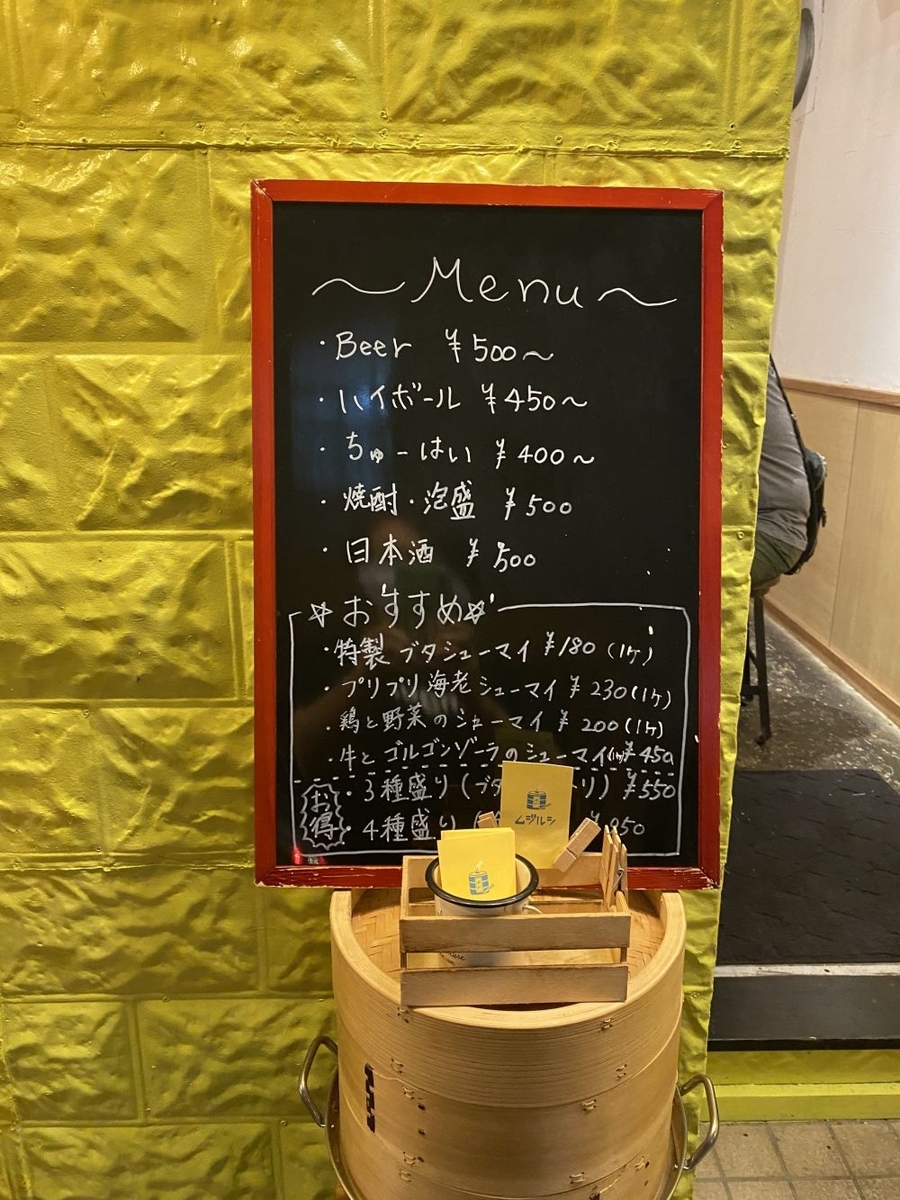 ～Menu～
・Beer ¥500～
・ハイボール ¥450～
・ちゅーはい ¥400～
・焼酎・泡盛 ¥500
・日本酒 ¥500
☆おすすめ☆
・特製 ブタシューマイ ¥180 (1ヶ)
・プリプリ海老シューマイ ¥230 (1ヶ)
・鶏と野菜のシューマイ ¥200 (1ヶ)
・牛とゴルゴンゾーラのシューマイ(1ヶ) ¥450
お得
・3種盛り (ブタ リ) ¥550
・4種盛り
ムジルシ